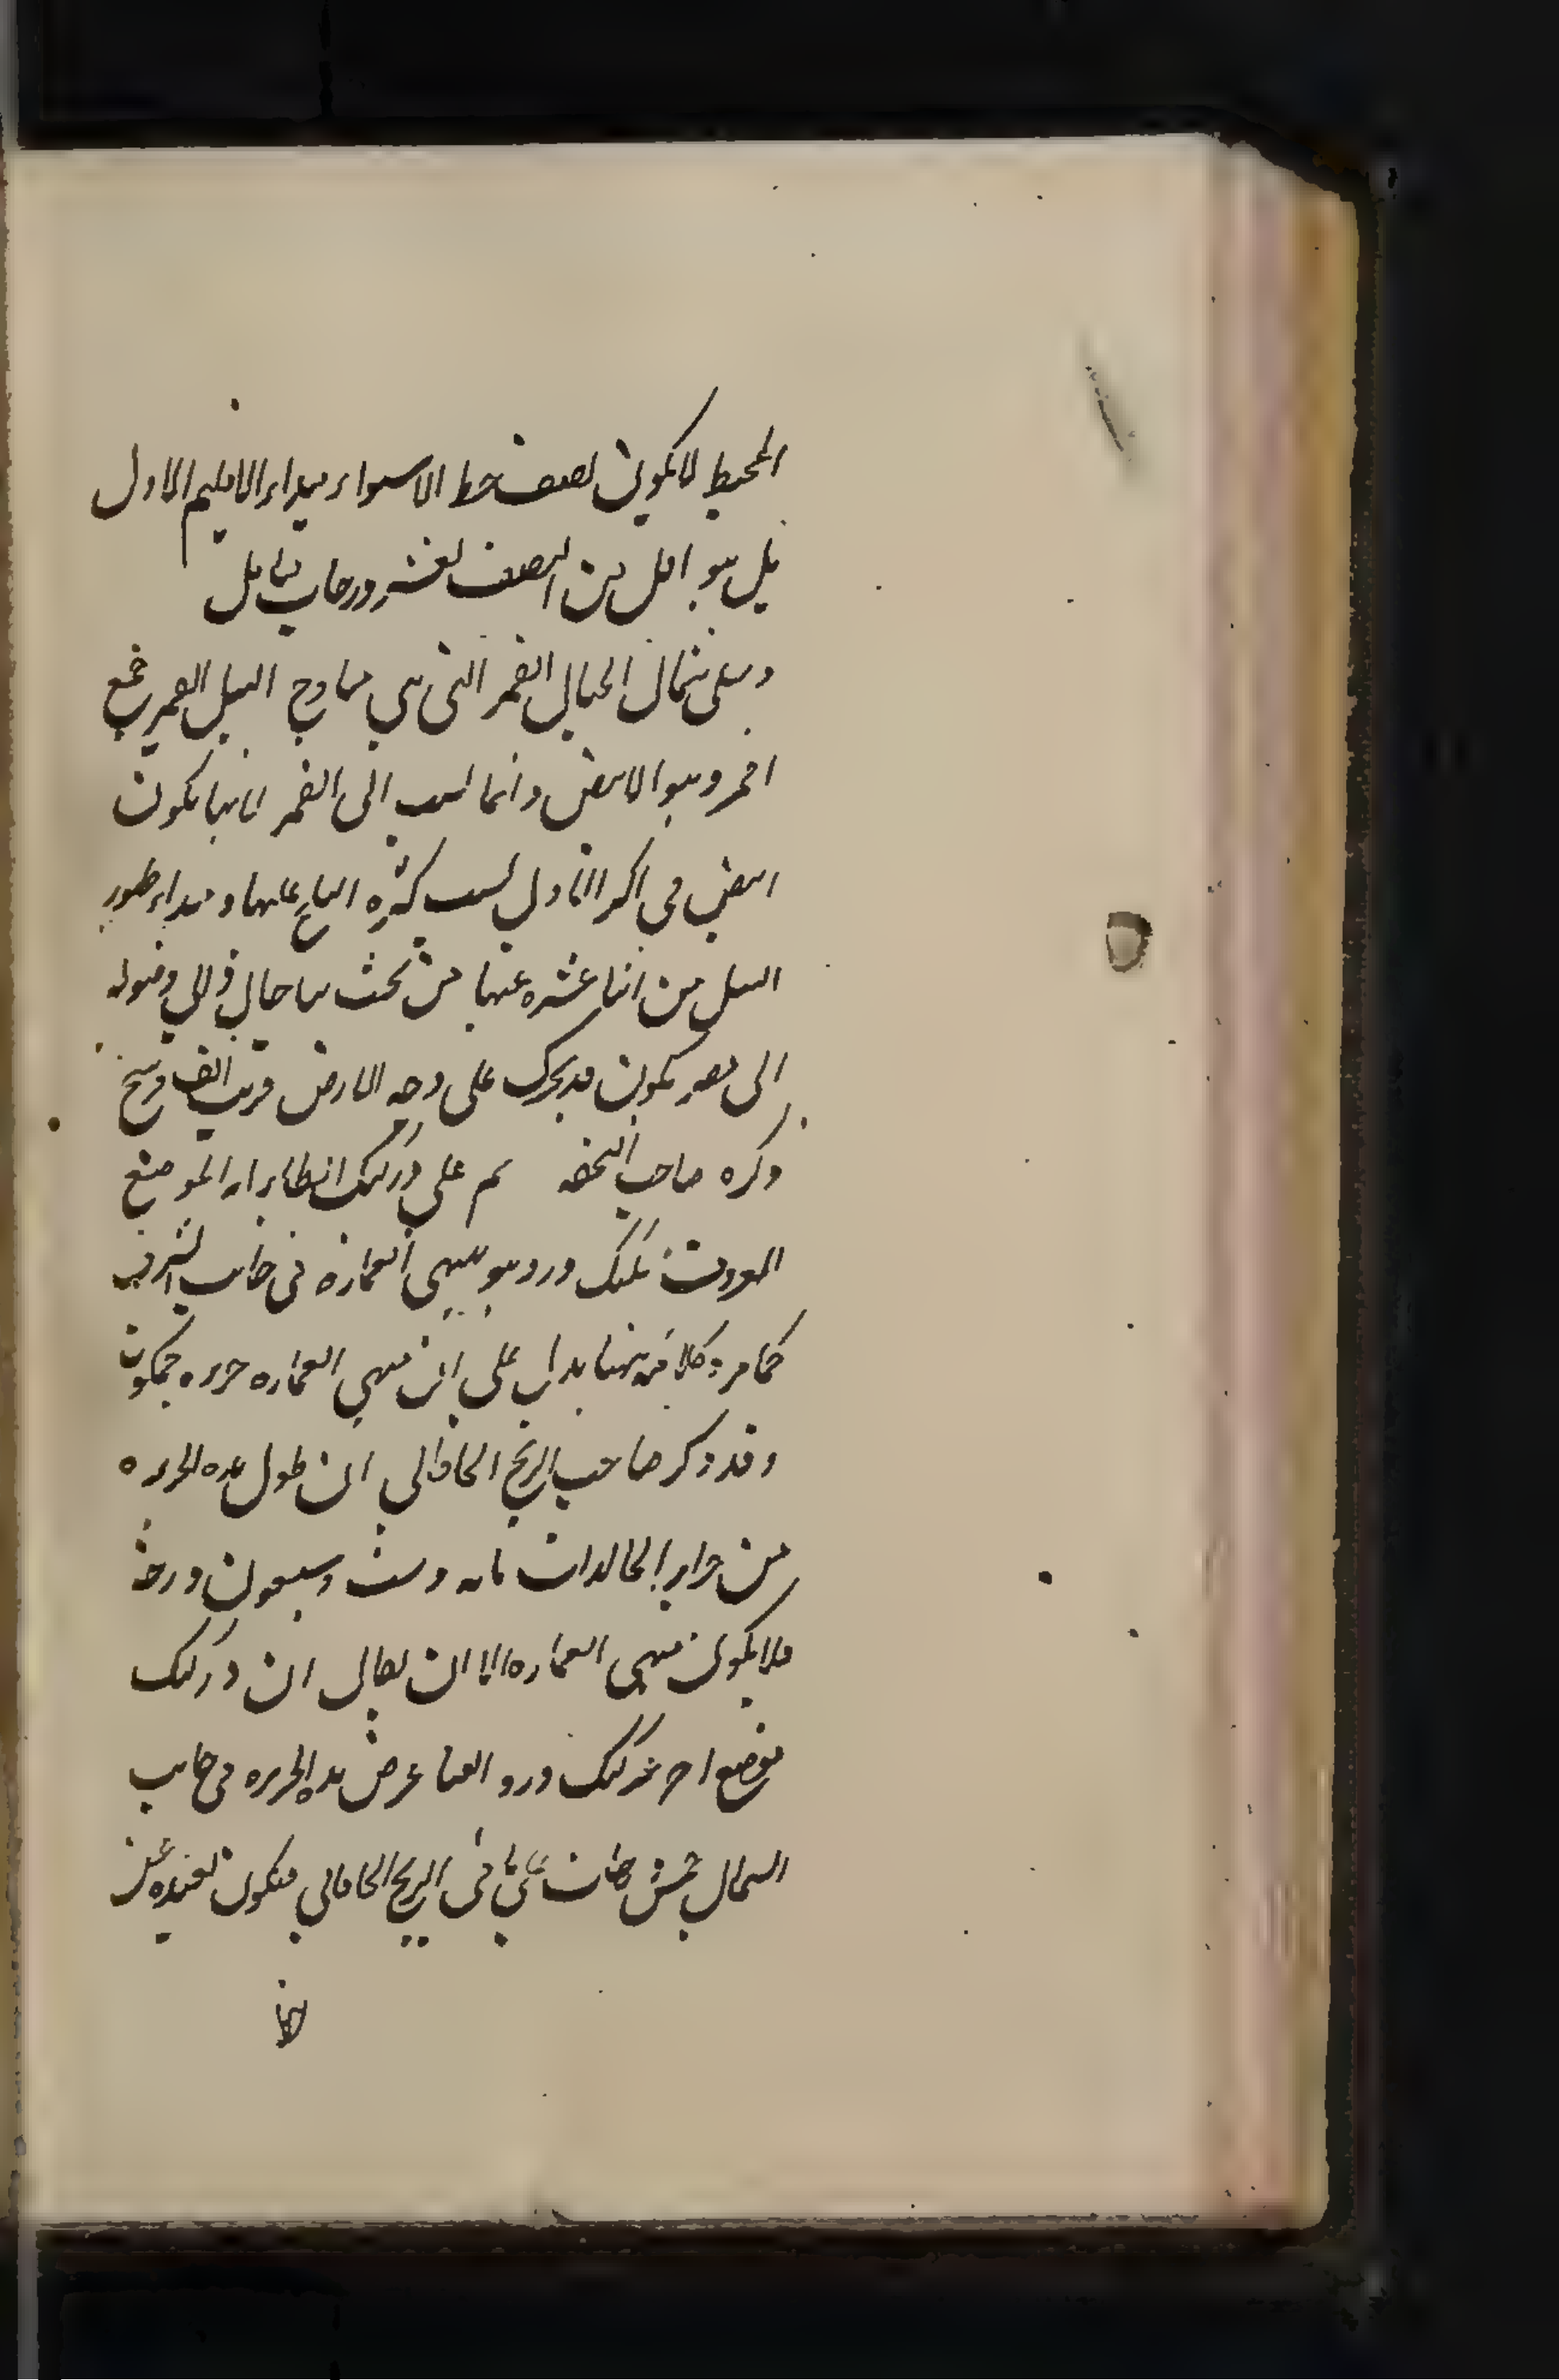 المحيط لا يكون نصف خط الاستواء مبداء الاقليم الاول
بل هو اقل من النصف بعشر درجات تامل
وعلى شمال الجبال القمر التي هي مخارج النيل القمر جمع
اقمر وهو الابيض وانما نسب الى القمر لانها يكون
ابيض في اكثر الاول بسبب كثرة الثلج عليها ومبداء ظهور
النيل من اثنا عشرة عينا من تحت جبال الى وصوله
الى مصر يكون قد تحرك على وجه الارض قريب الف فرسخ
ذكره صاحب التحفة ثم على دركنك الظاهر انه الموضع
المعروف بكنك در وهو منتهى العمارة في جانب الشرق
كما مر وكلامه ههنا يدل على ان منتهى العمارة جزيرة جمكوت
وقد ذكر صاحب الزيج الخاقاني ان طول هذه الجزيرة
من جزاير الخالدات مائه وست وسبعون درجة
فلا يكون منتهى العمارة الا ان يقال ان دركنك
موضع اخر غير كنك در و ايضا عرض هذه الجزيرة في جانب
الشمال خمس درجات على ما في الزيج الخاقاني فيكون بعيدة عن